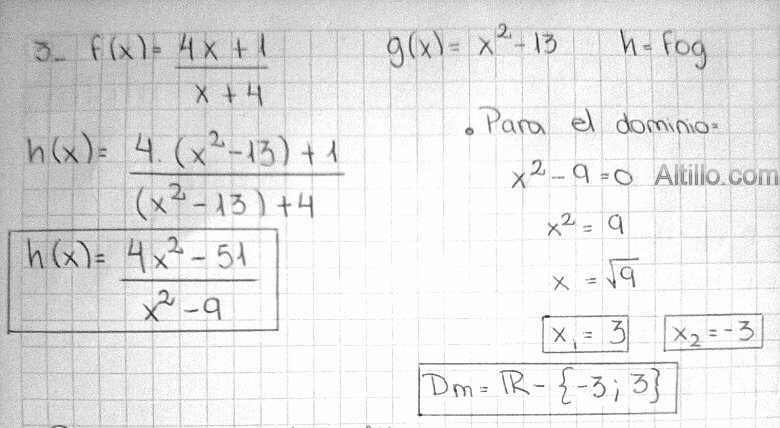 3_ f(x)= 4x + 1 / x + 4
g(x)= x² - 13   h = fog
h(x)= 4. (x² - 13) + 1 / (x² - 13) + 4
h(x)= 4x² - 51 / x² - 9
• Para el dominio=
x² - 9 = 0
Altillo.com
x² = 9
x = √9
x₁ = 3   x₂ = -3
Dm = ℝ - {-3; 3}